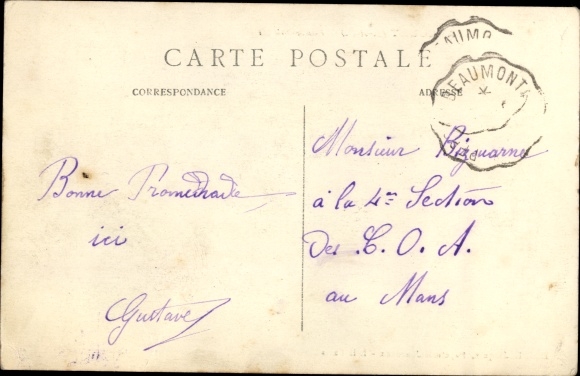 CARTE POSTALE
CORRESPONDANCE
ADRESSE
BEAUMONT
Bonne Promenade
ici
Gustave
Monsieur
à la 4me Section
Des C. O. A.
au Mans